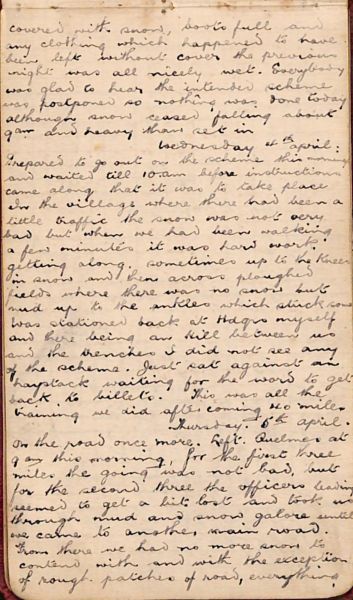 covered with snow, boots full and
any clothing which happened to have
been left without cover the previous
night was all nicely wet. Everybody
was glad to hear the intended scheme
was postponed so nothing was done today
although snow ceased falling about
9am and heavy thaw set in
Wednesday 4th april:
Prepared to go out on the scheme this morning
and waited till 10.am before instructions
came along that it was to take place
In the village where there had been a
little traffic the snow was not very
bad but when we had been walking
a few minutes it was hard work
getting along, sometimes up to the knees
in snow and then across ploughed
fields where there was no snow but
mud up to the ankles which stuck some
Was stationed back at Hdqrs myself
and there being an hill between us
and the trenches I did not see any
of the scheme. Just sat against an
haystack waiting for the word to get
back to billets. This was all the
training we did after coming 40 miles
Thursday. 5th april.
On the road once more. Left Quelmes at
9am this morning, for the first three
miles the going was not bad, but
for the second three the officers leading
seemed to get a bit lost and took us
through mud and snow galore until
we came to another main road.
From there we had no more snow to
contend with and with the exception
of rough patches of road, everything